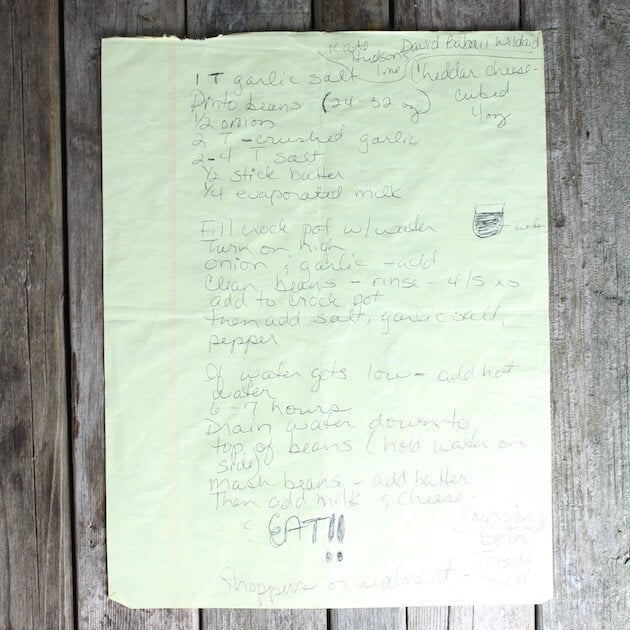 Kate
Hudson
line
David
1 T garlic salt
Cheddar cheese -
cubed
4 oz
Pinto beans (24-32 oz)
1/2 onion
2 T - crushed garlic
2-4 T salt
1/2 stick butter
1/4 evaporated milk
Fill crock pot w/ water
water
Turn on high
onion & garlic - add
Clean beans - rinse - 4/5 xs
add to crock pot
then add salt, garlic salt,
pepper
If water gets low - add hot
water
6-7 hours
Drain water down to
top of beans (hold water on
side)
mash beans - add butter
Then add milk & cheese -
& EAT!!
Mission
corn
Shoppers or walmart -